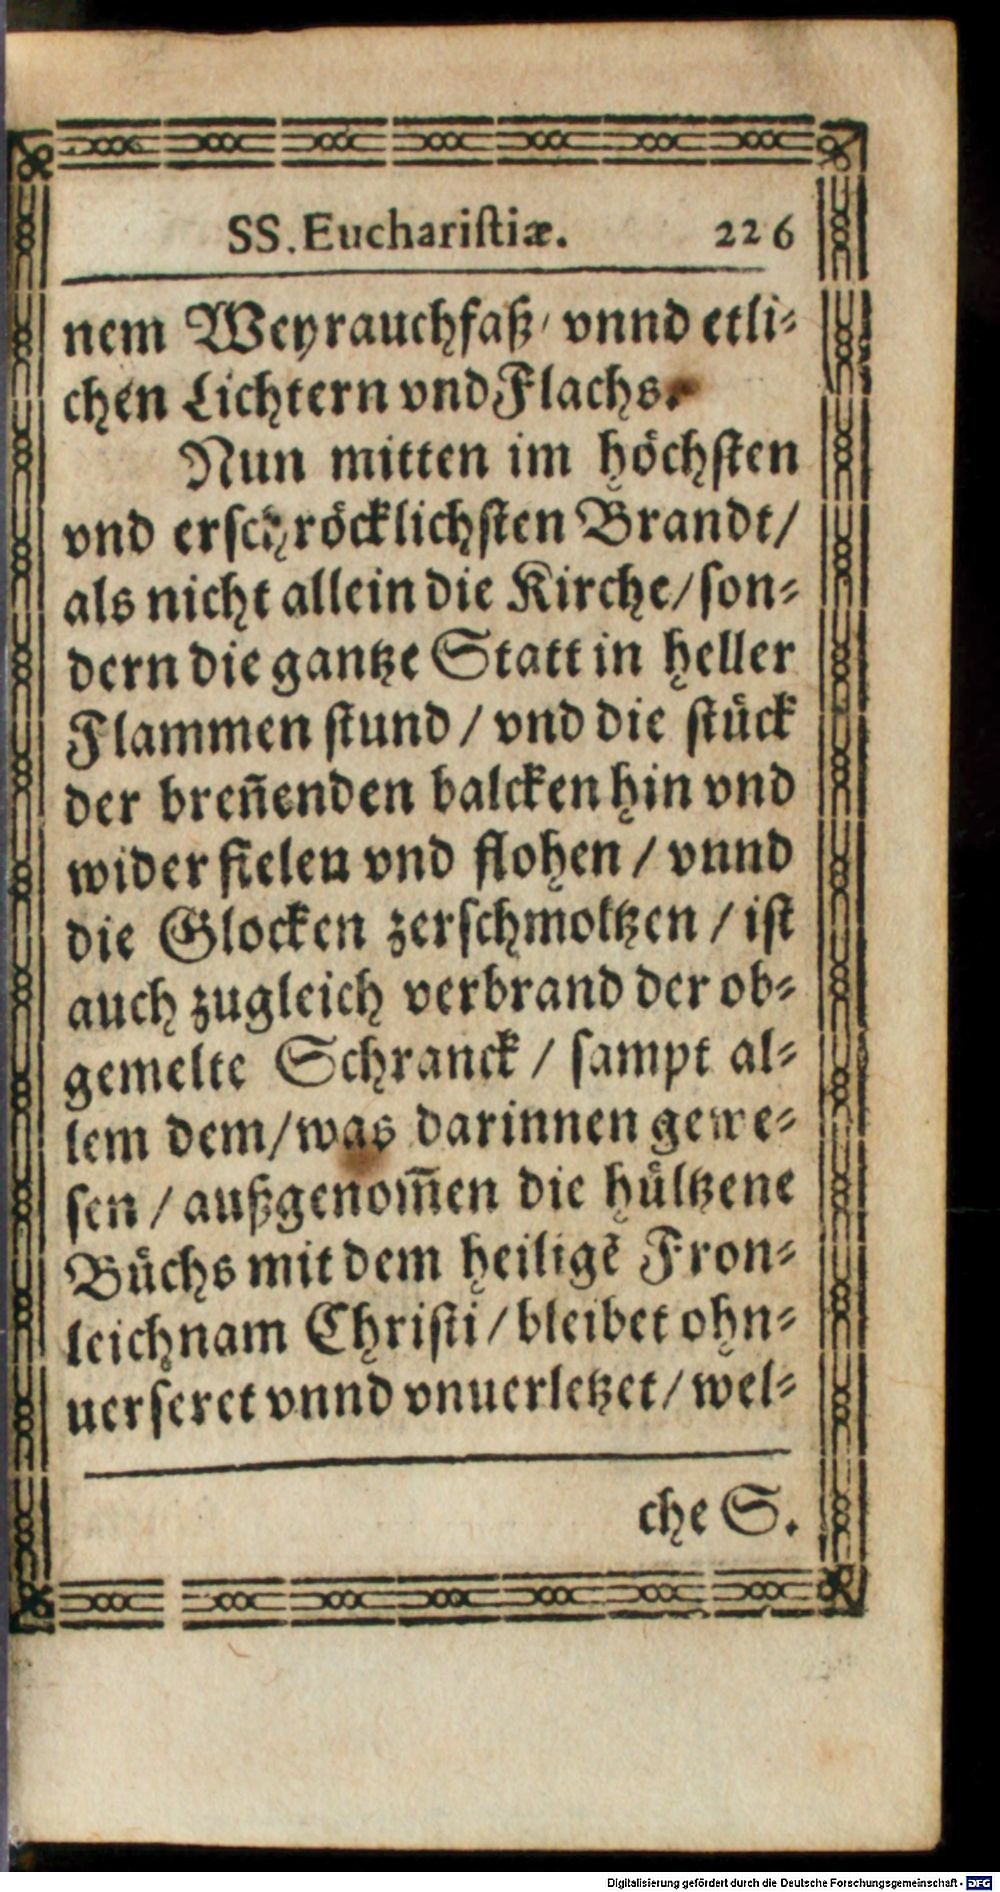 SS. Euchariſtiæ. 226
nem Weyrauchfaß/ vnnd etli-
chen Lichtern vnd Flachs.
Nun mitten im höchſten
vnd erſchröcklichſten Brandt/
als nicht allein die Kirche/ ſon-
dern die gantze Statt in heller
Flammen ſtund / vnd die ſtück
der breñenden balcken hin vnd
wider fielen vnd flohen / vnnd
die Glocken zerſchmoltzen / iſt
auch zugleich verbrand der ob-
gemelte Schranck / ſampt al-
lem dem/ was darinnen gewe-
ſen / außgenom̃en die hültzene
Büchs mit dem heiligẽ Fron-
leichnam Chriſti / bleibet ohn-
uerſeret vnnd vnuerletzet / wel-
che S.
Digitalisierung gefördert durch die Deutsche Forschungsgemeinschaft - DFG